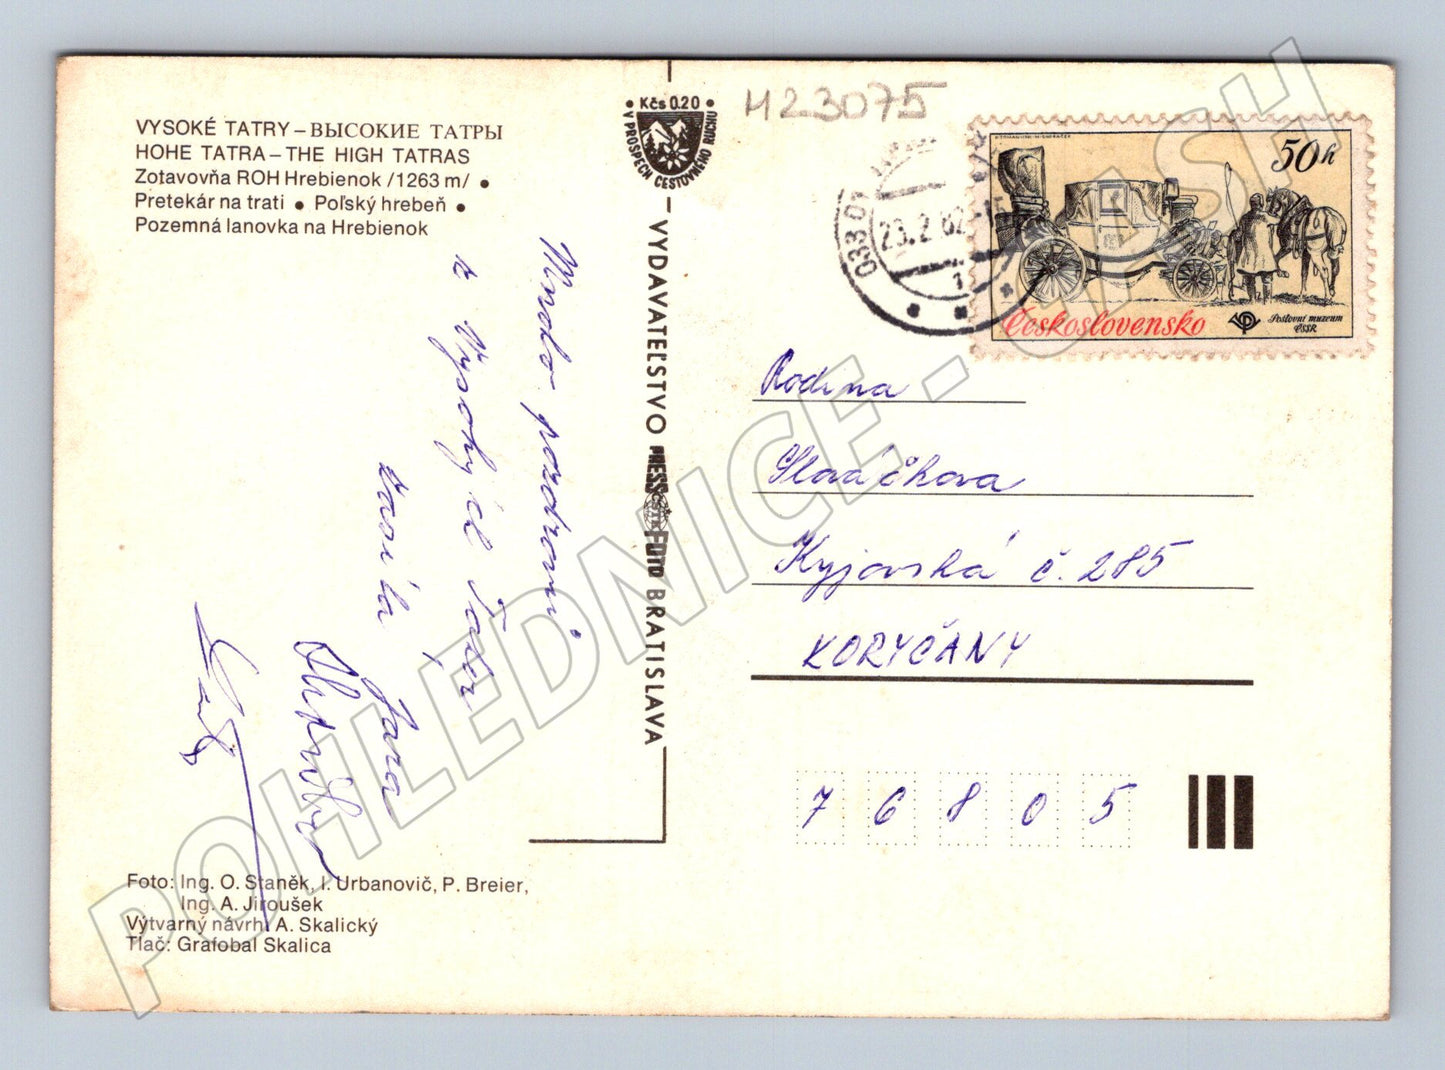 VYSOKÉ TATRY – ВЫСОКИЕ ТАТРЫ
HOHE TATRA – THE HIGH TATRAS
Zotavovňa ROH Hrebienok /1263 m/ •
Pretekár na trati • Poľský hrebeň •
Pozemná lanovka na Hrebienok
• Kčs 0.20 •
V PROSPECH CESTOVNÉHO RUCHU
H23075
23.2.82
1
50h
Československo
Poštovní muzeum
ČSSR
VYDAVATEĽSTVO PRESSFOTO BRATISLAVA
ČSTK
Mnoho pozdravů
z Vysokých Tater
zasílá
Jana
Rodina
Slováčkova
Kyjovská č. 285
KORYČANY
76805
Foto: Ing. O. Staněk, I. Urbanovič, P. Breier,
Ing. A. Jiroušek
Výtvarný návrh: A. Skalický
Tlač: Grafobal Skalica
POHLEDNICE - CASH